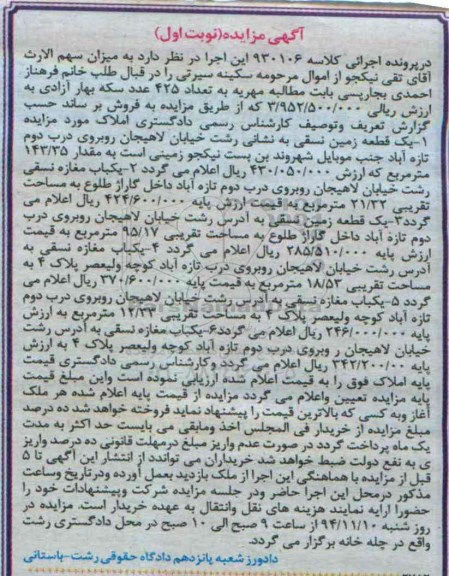 آگهی مزایده(نوبت اول)
درپرونده اجرائی کلاسه ۹۳۰۱۰۶ این اجرا در نظر دارد به میزان سهم الارث
آقای تقی نیکجو از اموال مرحومه سکینه سیرتی را در قبال طلب خانم فرهناز
احمدی بجارپسی بابت مطالبه مهریه به تعداد ۴۲۵ عدد سکه بهار آزادی به
ارزش ریالی ۳/۹۵۲/۵۰۰/۰۰۰ که از طریق مزایده به فروش بر ساند حسب
گزارش تعریف وتوصیف کارشناس رسمی دادگستری املاک مورد مزایده
۱-یک قطعه زمین نسقی به نشانی رشت خیابان لاهیجان روبروی درب دوم
تازه آباد جنب موبایل شهروند بن بست نیکجو زمینی است به مقدار ۱۴۳/۳۵
مترمربع که ارزش ۴۳۰/۰۵۰/۰۰۰ ریال اعلام می گردد ۲-یکباب مغازه نسقی
رشت خیابان لاهیجان روبروی درب دوم تازه آباد داخل گاراژ طلوع به مساحت
تقریبی ۲۱/۳۲ مترمربع به قیمت ارزش پایه ۴۲۴/۶۰۰/۰۰۰ ریال اعلام می
گردد۳-یک قطعه زمین نسقی به آدرس رشت خیابان لاهیجان روبروی درب
دوم تازه آباد داخل گاراژ طلوع به مساحت تقریبی ۹۵/۱۷ مترمربع به قیمت
ارزش پایه ۲۸۵/۵۱۰/۰۰۰ ریال اعلام می گردد ۴-یکباب مغازه نسقی به
آدرس رشت خیابان لاهیجان روبروی درب تازه آباد کوچه ولیعصر پلاک ۴ به
مساحت تقریبی ۱۸/۵۳ مترمربع به قیمت پایه ۳۷۰/۶۰۰/۰۰۰ ریال اعلام می
گردد ۵-یکباب مغازه نسقی به آدرس رشت خیابان لاهیجان روبروی درب دوم
تازه آباد کوچه ولیعصر پلاک ۴ به مساحت تقریبی ۱۲/۳۳ مترمربع به ارزش
پایه ۲۴۶/۰۰۰/۰۰۰ ریال اعلام می گردد۶-یکباب مغازه نسقی به آدرس رشت
خیابان لاهیجان ر وبروی درب دوم تازه آباد کوچه ولیعصر پلاک ۴ به ارزش
پایه ۳۴۲/۲۰۰/۰۰ ریال اعلام می گردد وکارشناس رسمی دادگستری قیمت
پایه املاک فوق را به قیمت اعلام شده ارزیابی نموده است واین مبلغ قیمت
پایه مزایده تعیین واعلام می گردد مزایده از قیمت پایه اعلام شده هر ملک
آغاز وبه کسی که بالاترین قیمت را پیشنهاد نماید فروخته خواهد شد ده درصد
مبلغ مزایده از خریدار فی المجلس اخذ ومابقی می بایست حد اکثر به مدت
یک ماه پرداخت گردد در صورت عدم واریز مبلغ درمهلت قانونی ده درصد واریز
ی به نفع دولت ضبط خواهد شد خریداران می تواندد از انتشار این آگهی تا ۵
قبل از مزایده با هماهنگی این اجرا از ملک بازدید بعمل آورده ودرتاریخ وساعت
مذکور درمحل این اجرا حاضر ودر جلسه مزایده شرکت وپیشنهادات خود را
حضورا ارایه نمایند هزینه های نقل وانتقال به عهده خریدار است. مزایده در
روز شنبه ۹۴/۱۱/۱۰ از ساعت ۹ صبح الی ۱۰ صبح در محل دادگستری رشت
واقع در چله خانه برگزار می گردد.
دادورز شعبه پانزدهم دادگاه حقوقی رشت-باستانی